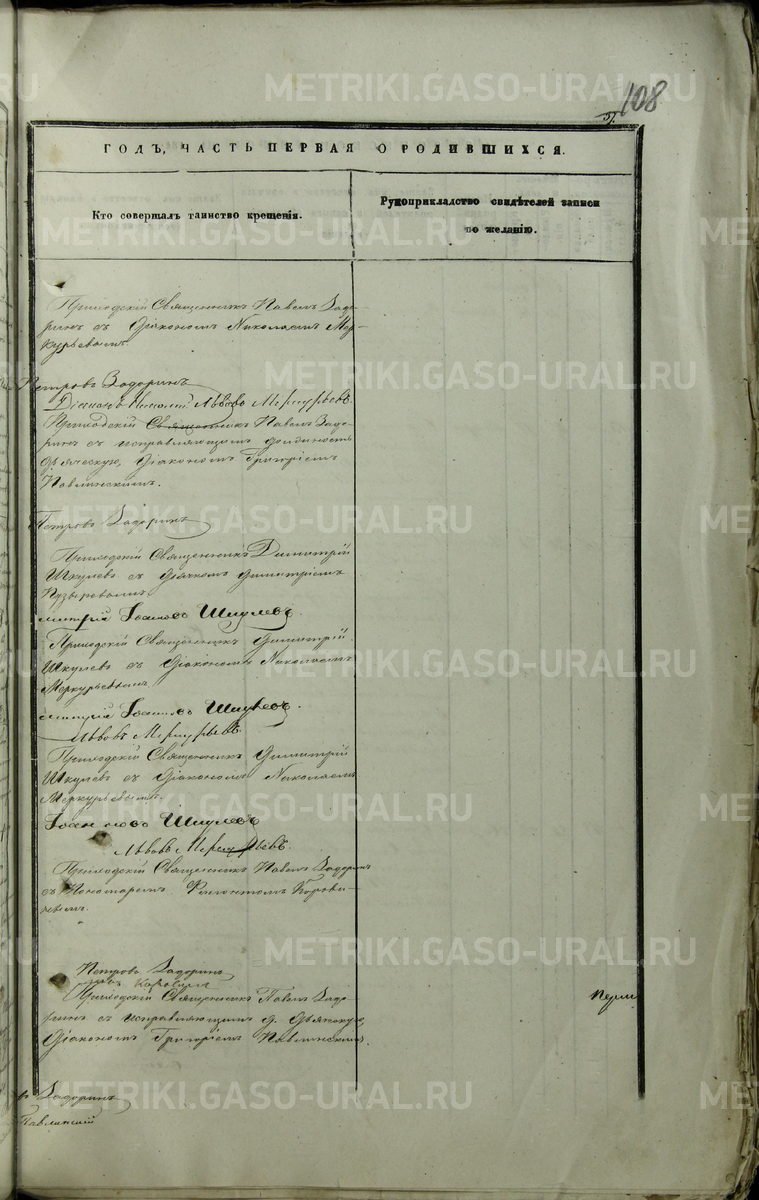 108
57.
ГОДЪ, ЧАСТЬ ПЕРВАЯ О РОДИВШИХСЯ.
Кто совершалъ таинство крещенія.
Рукоприкладство свидѣтелей записи
по желанію.
Приходскій Священникъ Павелъ Задо-
ринъ съ Діакономъ Николаемъ Мер-
курьевымъ
Петровъ Задоринъ
Діаконъ Николай Львовъ Меркурьевъ
Приходскій Священникъ Павелъ Задо-
ринъ съ исправляющимъ должность
дьяческую, Діакономъ Григоріемъ
Павлинскимъ.
Петровъ Задоринъ
Приходскій Священникъ Димитрій
Шкулевъ съ Дьячкомъ Димитріемъ
Пузыревымъ
митрій Іоанновъ Шкулевъ.
Приходскій Священникъ Димитрій
Шкулевъ съ Діакономъ Николаемъ
Меркурьевымъ
митрій Іоанновъ Шкулевъ.
Львовъ Меркурьевъ.
Приходскій Священникъ Димитрій
Шкулевъ съ Діакономъ Николаемъ
Меркурьевымъ.
Іоанновъ Шкулевъ
Львовъ Меркурьевъ.
Приходскій Священникъ Павелъ Задоринъ
съ Пономаремъ
Петровъ Задоринъ
Приходскій Священникъ Павелъ Задо-
ринъ съ исправляющимъ д. Дьяческую,
Діакономъ Григоріемъ Павлинскимъ.
Задоринъ
Павлинскій
METRIKI.GASO-URAL.RU